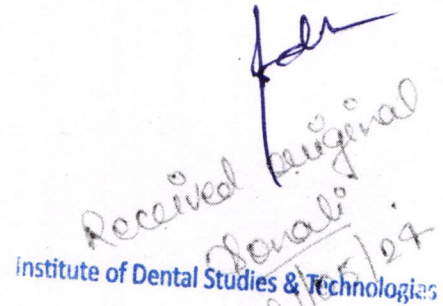 Received original
Sonali
Institute of Dental Studies & Technologies
/05/24